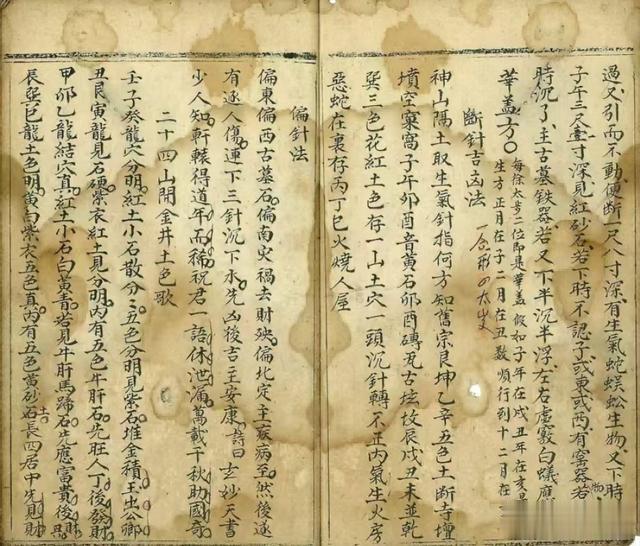 過又引而不動便斷一尺八寸深有生氣蛇蜈蚣生物又下時
子午三尺壹寸深見紅砂石若下時不認子或東或西有窑器若物
時沉了主古墓铁器若又下半沉半浮左右虛竅白蟻應
華盖方〇
每徐太歲二位即是華盖假如子年在戌丑年在亥
生方正月在子二月在丑数順行到十二月在
斷針吉凶法
神山陽土取生氣針指何方知舊宗艮坤乙辛五色土斷寺壇
墳空窠窩子午卯酉音黄石卯酉磚瓦古坟故辰戌丑未並乾
巽三色花紅土色存一山土穴一頭沉針轉不正内氣生火房
惡蛇在裏存丙丁巳火燒人屋
偏針法
偏東偏西古墓石偏南火禍去財殃偏北定主疾病至然後逐
有逐人傷連下三針沉下永先凶後吉主安康詩曰玄妙天書
少人知軒轅得道年而稀祝君一語休泄漏萬載千秋助國奇
二十四山開金井土色歌
壬子癸龍穴分明紅土小石散分〻五色分明見紫石堆金積玉出公卿
丑艮寅龍見石硬紫衣紅土見分明内有五色牛肝石先旺人丁後發財
甲卯乙龍結穴真紅土小石白黄青若見牛肝馬蹄石先應富貴後
辰巽巳龍土色明黄白紫衣五色真内有五色黄砂石土長四居中先則財